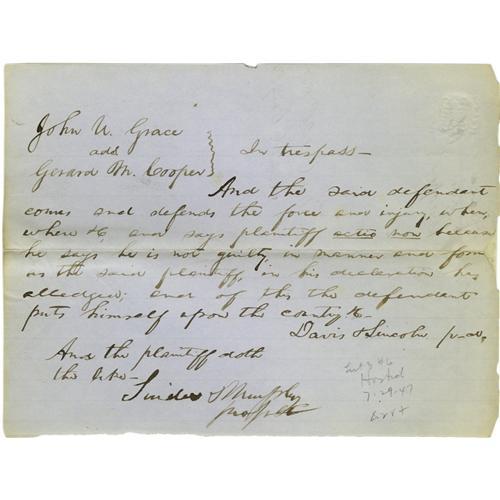 John W. Grace
ads
Gerard M. Cooper } In trespass—
And the said defendant
comes and defends the force and injury, when,
where &c and says plaintiff actio non because
he says he is not guilty in manner and form
as the said plaintiff, in his declaration has
alledged; and of this the defendant
puts himself upon the country &c—
Davis & Lincoln p.d.
And the plaintiff doth
the like—
Linder & Murphy
pro plt
Hosted
7-29-47